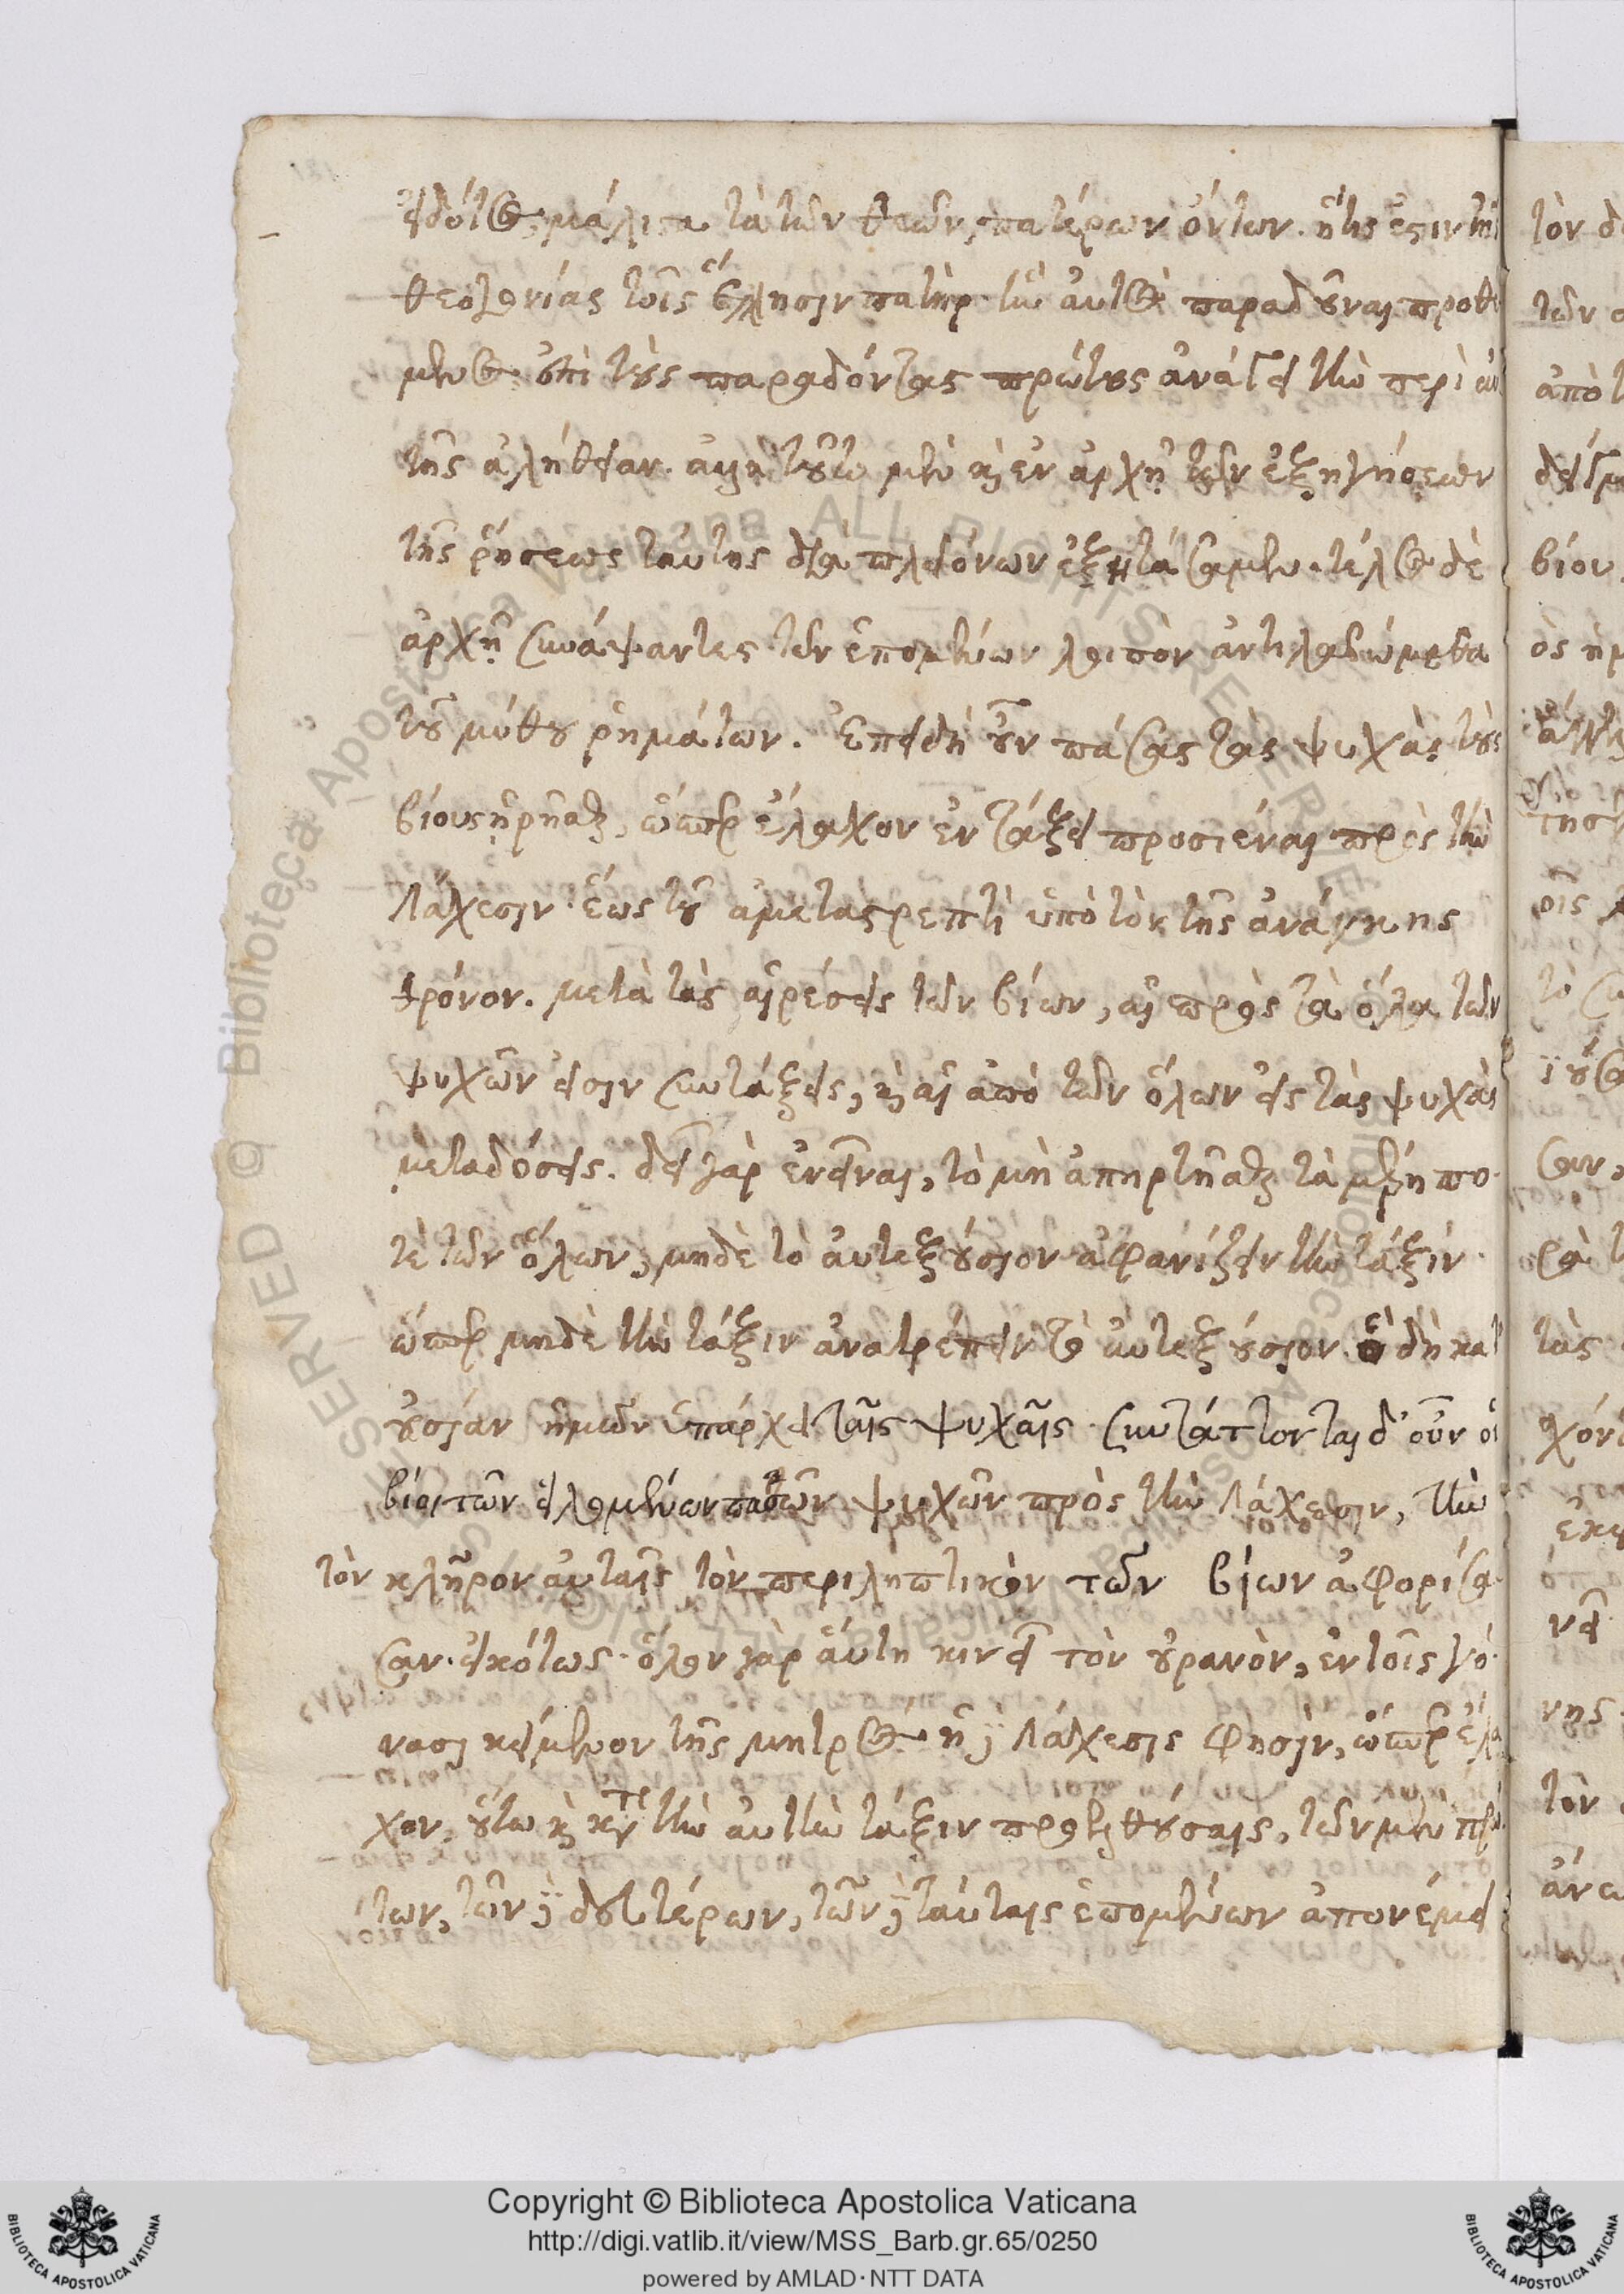 εἰδότος μάλιστα τὰ τῶν θεῶν, πατέρων ὄντων. ἥτις ἐστιν τῆς
θεολογίας τοῖς ἕλλησιν πατήρ. τῶ αὐτὸς παραδοῦναι προθε
μενος ἐπὶ τοὺς παραδόντας πρώτους ἀνάγει τὴν περὶ αὐ
τῆς ἀλήθειαν. ἀλλὰ τοῦτο μὲν καὶ ἐν ἀρχῇ τῶν ἐξηγήσεων
τῆς ῥήσεως ταύτης διὰ πλειόνων ἐξητάσαμεν. τέλος δὲ
ἀρχῇ συνάψαντες τῶν ἑπομένων λοιπὸν ἀντιλαβώμεθα
τοῦ μύθου ῥημάτων. Ἐπειδὴ οὖν πάσας τὰς ψυχὰς τοὺς
βίους ᾑρῆσθαι, ὥσπερ ἔλαχον ἐν τάξει προσιέναι πρὸς τὴν
Λάχεσιν. ἕως τοῦ ἀμεταστρεπτὶ ὑπὸ τὸν τῆς ἀνάγκης
θρόνον. μετὰ τὰς αἱρέσεις τῶν βίων, αἱ πρὸς τὰ ὅλα τῶν
ψυχῶν εἰσιν συντάξεις, καὶ αἱ ἀπὸ τῶν ὅλων εἰς τὰς ψυχὰς
μεταδόσεις. δεῖ γὰρ ἐνεῖναι, τὸ μὴ ἀπηρτῆσθαι τὰ μέρη πο
τὲ τῶν ὅλων, μηδὲ τὸ αὐτεξούσιον ἀφανίζειν τὴν τάξιν.
ὥσπερ μηδὲ τὴν τάξιν ἀνατρέπειν τὸ αὐτεξούσιον. ὃ δὴ κατ
οὐσίαν ἡμῶν ὑπάρχει ταῖς ψυχαῖς. συντάττονται δ' οὖν οἱ
βίοι τῶν εἱλομένων πασῶν ψυχῶν πρὸς τὴν Λάχεσιν, τὴν
τὸν κλῆρον αὐταῖς τὸν περιληπτικὸν τῶν βίων ἀφορίσα
σαν. εἰκότως. ὅλον γὰρ αὕτη κινεῖ τὸν οὐρανὸν, ἐν τοῖς γό
νασι κείμενον τῆς μητρός. ἡ δὲ Λάχεσις φησὶν, ὥσπερ ἔλα
χον, οὕτω καὶ κατὰ τὴν αὐτὴν τάξιν προελθούσαις, τῶν μὲν πρώ
των, τῶν δὲ δευτέρων, τῶν δὲ ταύταις ἑπομένων ἀπονέμει
Copyright © Biblioteca Apostolica Vaticana
http://digi.vatlib.it/view/MSS_Barb.gr.65/0250
powered by AMLAD · NTT DATA